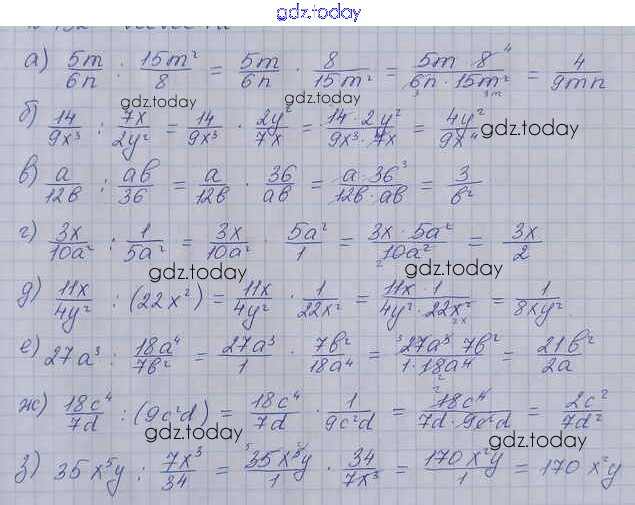 gdz.today
а) 5m/6n : 15m²/8 = 5m/6n · 8/15m² = 5m · 8/6n · 15m² = 4/9mn
gdz.today gdz.today
б) 14/9x³ : 7x/2y² = 14/9x³ · 2y²/7x = 14 · 2y²/9x³ · 7x = 4y²/9x⁴ gdz.today
в) a/12b : ab/36 = a/12b · 36/ab = a · 36/12b · ab = 3/b²
gdz.today gdz.today
г) 3x/10a² : 1/5a² = 3x/10a² · 5a²/1 = 3x · 5a²/10a² = 3x/2
gdz.today gdz.today
д) 11x/4y² : (22x²) = 11x/4y² · 1/22x² = 11x · 1/4y² · 22x² = 1/8xy²
gdz.today gdz.today
е) 27a³ : 18a⁴/7b² = 27a³/1 · 7b²/18a⁴ = 27a³ 7b²/1 · 18a⁴ = 21b²/2a
ж) 18c⁴/7d : (9c²d) = 18c⁴/7d · 1/9c²d = 18c⁴/7d · 9c²d = 2c²/7d²
gdz.today gdz.today
з) 35x⁵y : 7x³/34 = 35x⁵y/1 · 34/7x³ = 170x²y/1 = 170x²y